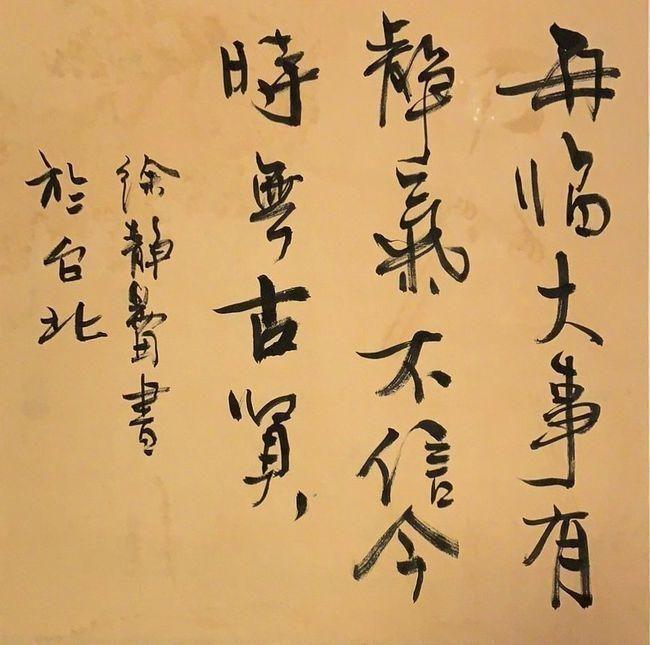 每临大事有
靜氣不信今
時無古賢
徐靜書
於台北